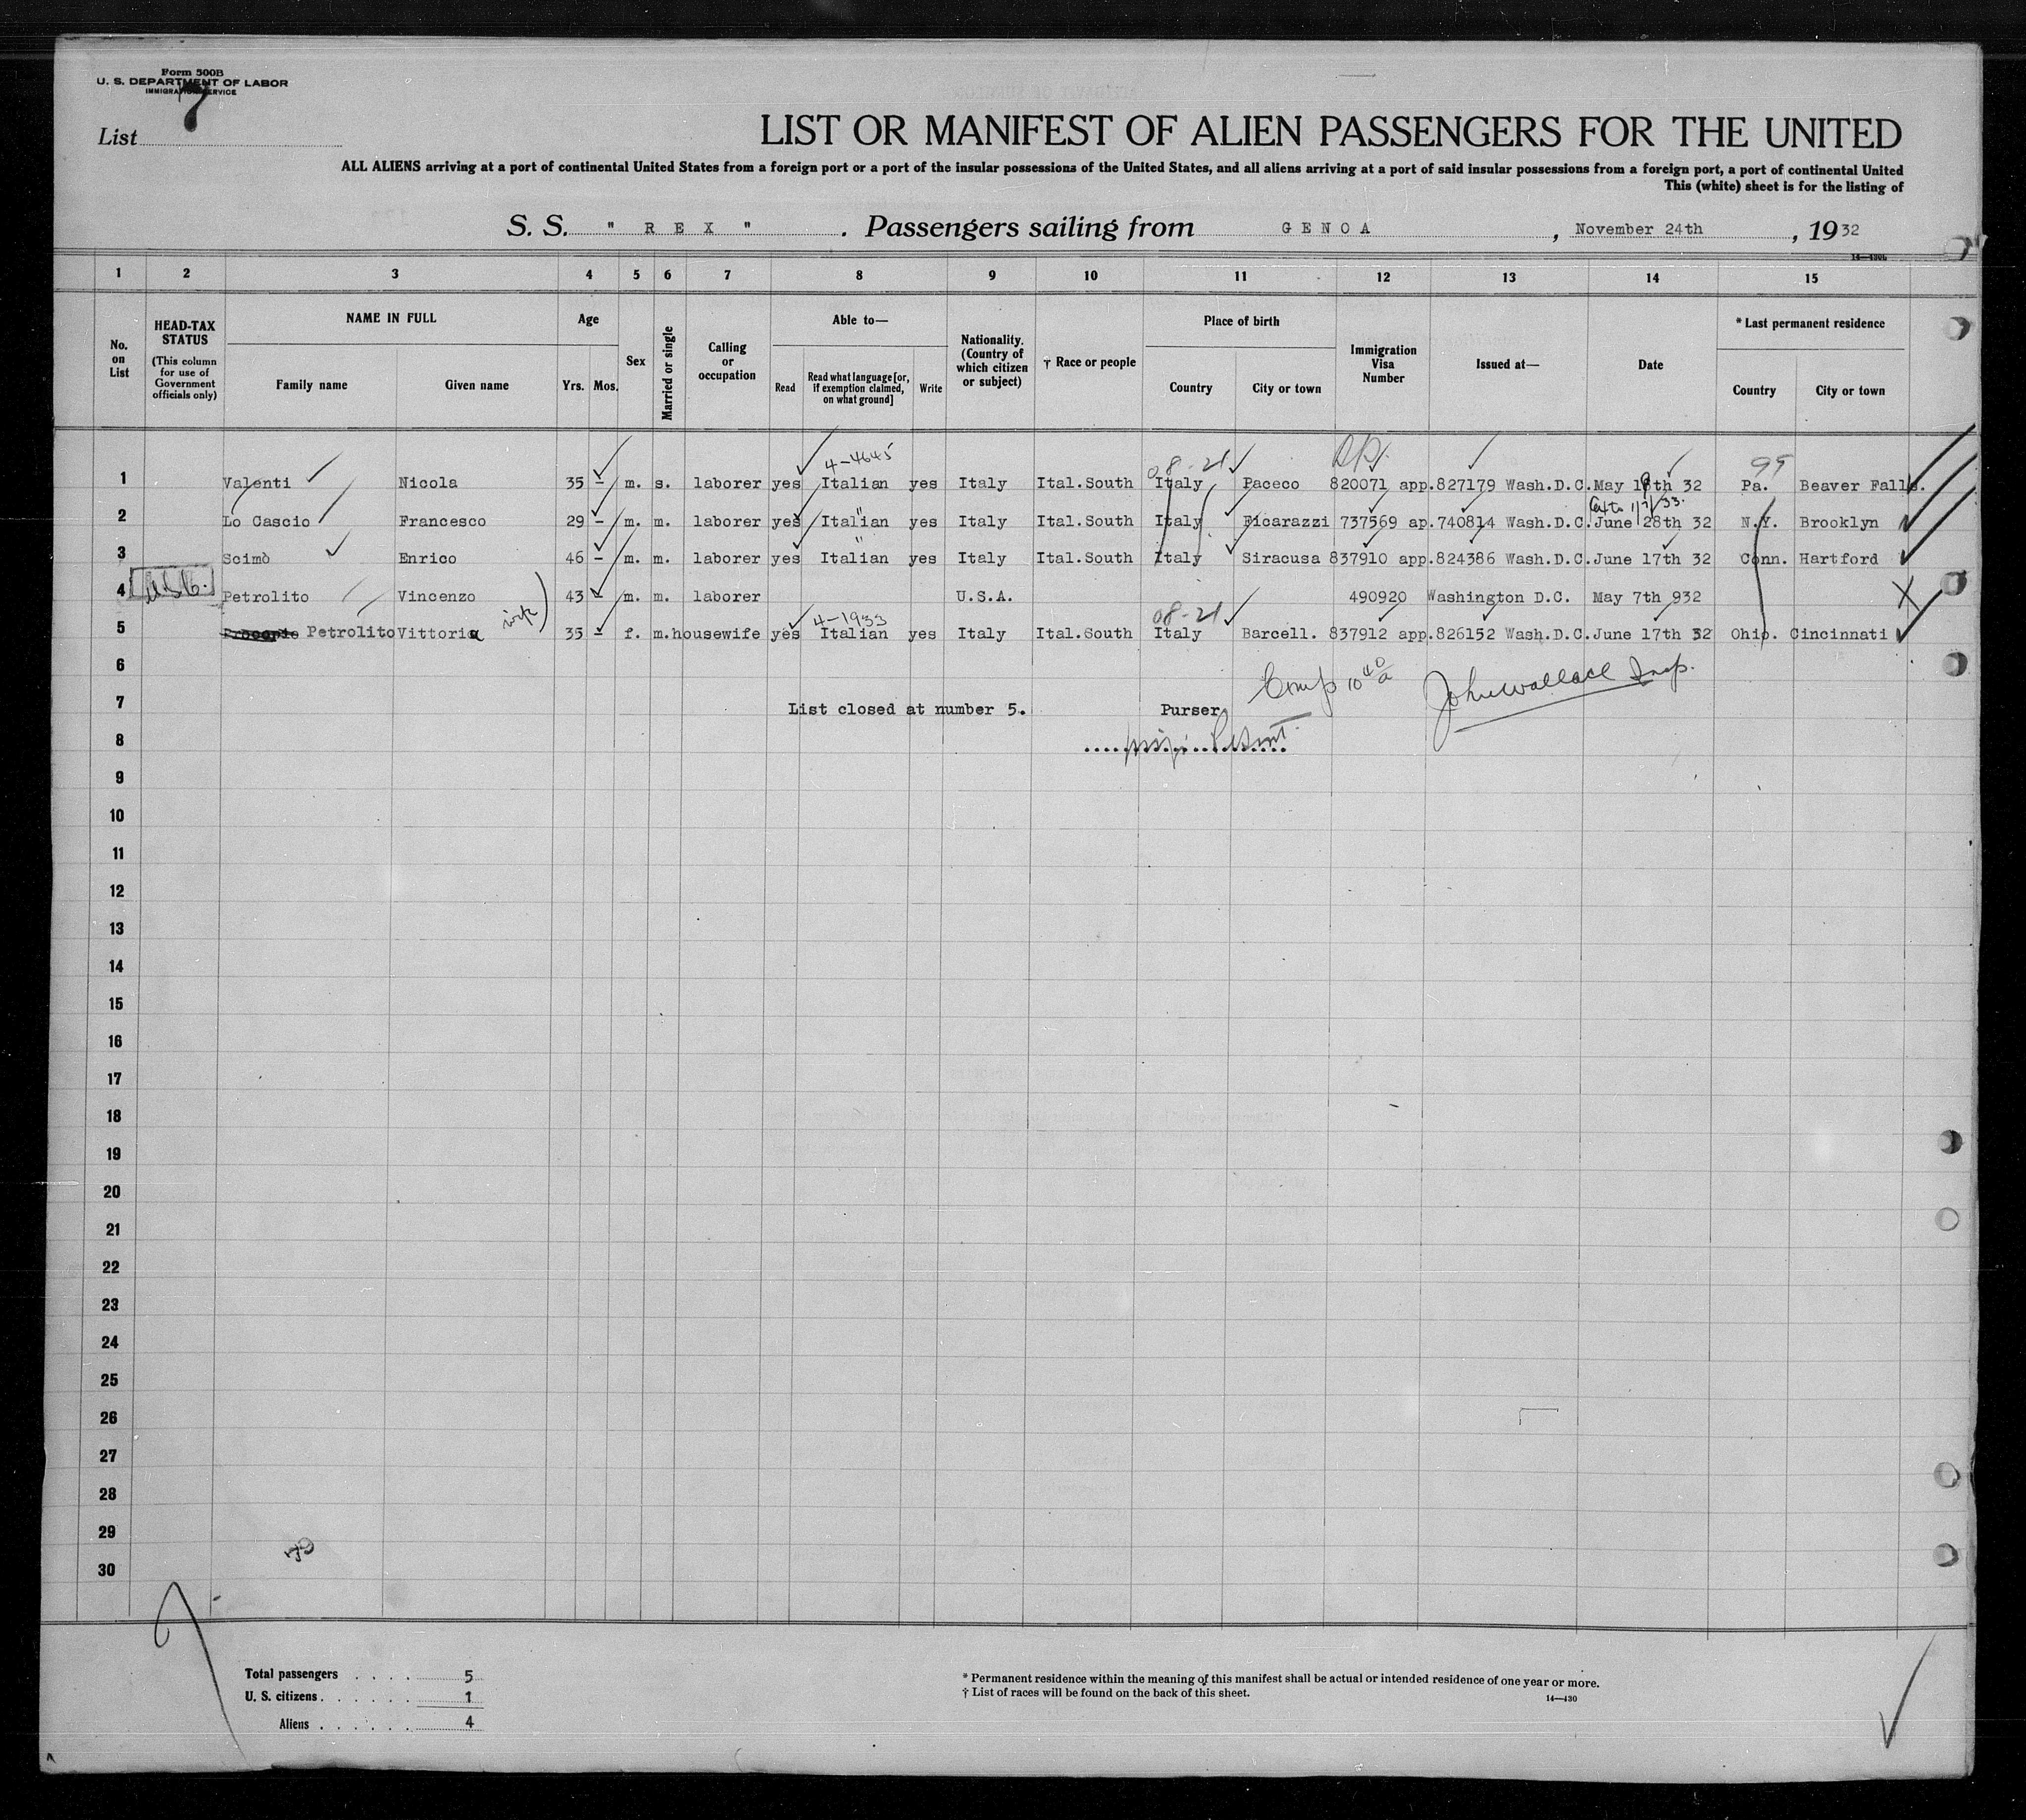 Form 500B
U. S. DEPARTMENT OF LABOR
IMMIGRATION SERVICE
7
List
LIST OR MANIFEST OF ALIEN PASSENGERS FOR THE UNITED
ALL ALIENS arriving at a port of continental United States from a foreign port or a port of the insular possessions of the United States, and all aliens arriving at a port of said insular possessions from a foreign port, a port of continental United
This (white) sheet is for the listing of
S. S. " R E X " . Passengers sailing from G E N O A , November 24th , 1932
1 2 3 4 5 6 7 8 9 10 11 12 13 14 15
No. on List
HEAD-TAX STATUS (This column for use of Government officials only)
NAME IN FULL
Family name Given name
Age
Yrs. Mos.
Sex
Married or single
Calling or occupation
Able to—
Read
Read what language [or, if exemption claimed, on what ground]
Write
Nationality. (Country of which citizen or subject)
† Race or people
Place of birth
Country City or town
Immigration Visa Number
Issued at—
Date
* Last permanent residence
Country City or town
4-4645 08-21 99
1 Valenti Nicola 35 – m. s. laborer yes Italian yes Italy Ital.South Italy Paceco 820071 app.827179 Wash.D.C. May 18th 32 Pa. Beaver Falls.
2 Lo Cascio Francesco 29 – m. m. laborer yes Italian yes Italy Ital.South Italy Ficarazzi 737569 ap.740814 Wash.D.C. June 28th 32 N.Y. Brooklyn
3 Scimò Enrico 46 – m. m. laborer yes Italian yes Italy Ital.South Italy Siracusa 837910 app.824386 Wash.D.C. June 17th 32 Conn. Hartford
4 U.S.C. Petrolito Vincenzo 43 – m. m. laborer U.S.A. 490920 Washington D.C. May 7th 932
wife 4-1933 08-21
5 Petrolito Vittoria 35 – f. m. housewife yes Italian yes Italy Ital.South Italy Barcell. 837912 app.826152 Wash.D.C. June 17th 32 Ohio. Cincinnati
6
John Wallace Insp.
7 List closed at number 5. Purser
8
9
10
11
12
13
14
15
16
17
18
19
20
21
22
23
24
25
26
27
28
29
30
Total passengers . . . . 5
U. S. citizens . . . . . . 1
Aliens . . . . . . 4
* Permanent residence within the meaning of this manifest shall be actual or intended residence of one year or more.
† List of races will be found on the back of this sheet.
14—430